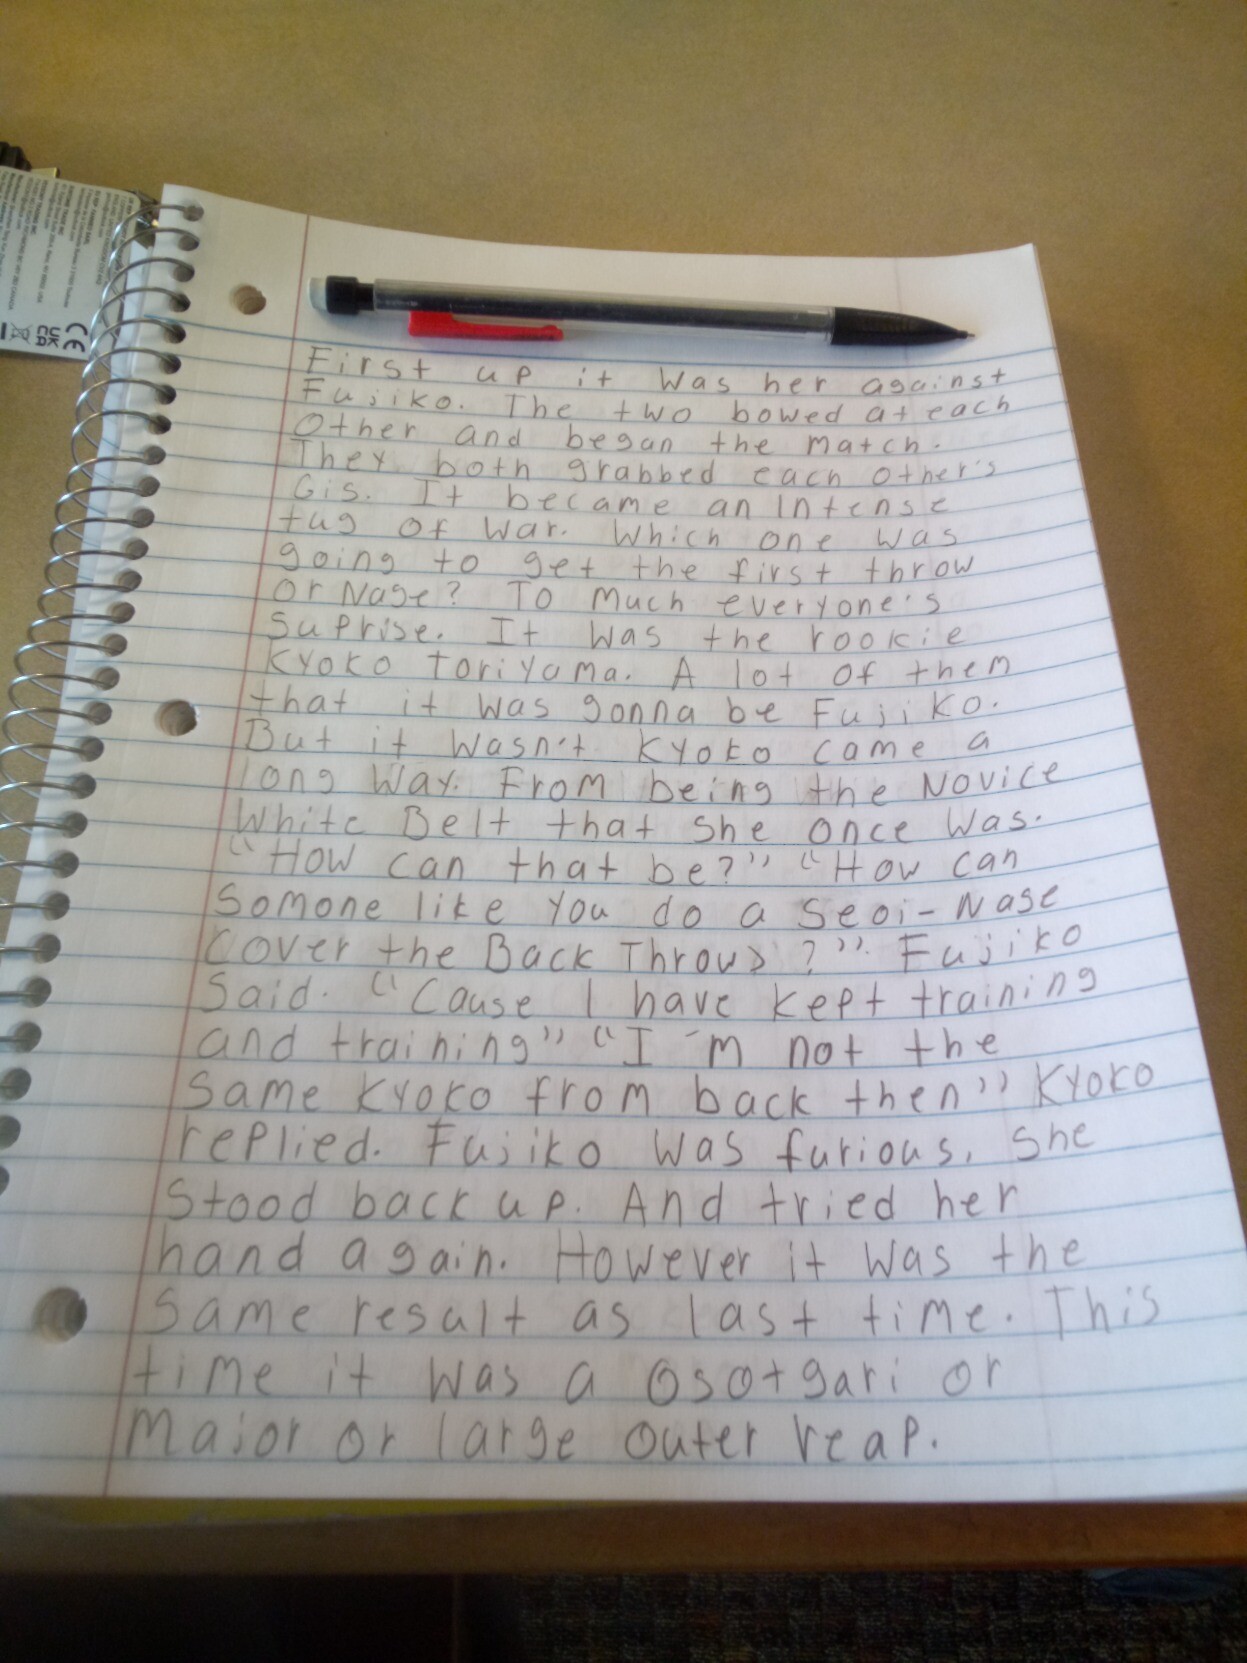 First up it was her against
Fujiko. The two bowed at each
Other and began the match.
They both grabbed each other's
Gis. It became an Intense
tug of war. Which one was
going to get the first throw
or Nage? To much everyone's
Suprise. It was the rookie
Kyoko Toriyama. A lot of them
that it was gonna be Fujiko.
But it wasn't Kyoko came a
long way. From being the Novice
White Belt that she once was.
"How can that be?" "How can
Somone like you do a Seoi-Nage
(over the Back Throw) ?" Fujiko
Said. "Cause I have kept training
and training" "I'm not the
Same Kyoko from back then" Kyoko
replied. Fujiko was furious, she
Stood back up. And tried her
hand again. However it was the
Same result as last time. This
time it was a Osotgari or
Major or large outer reap.
UK
CA
CE